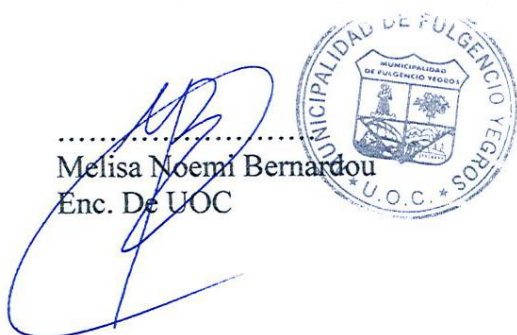 MUNICIPALIDAD DE FULGENCIO YEGROS
MUNICIPALIDAD
DE FULGENCIO YEGROS
* U.O.C. *
........................
Melisa Noemi Bernardou
Enc. De UOC